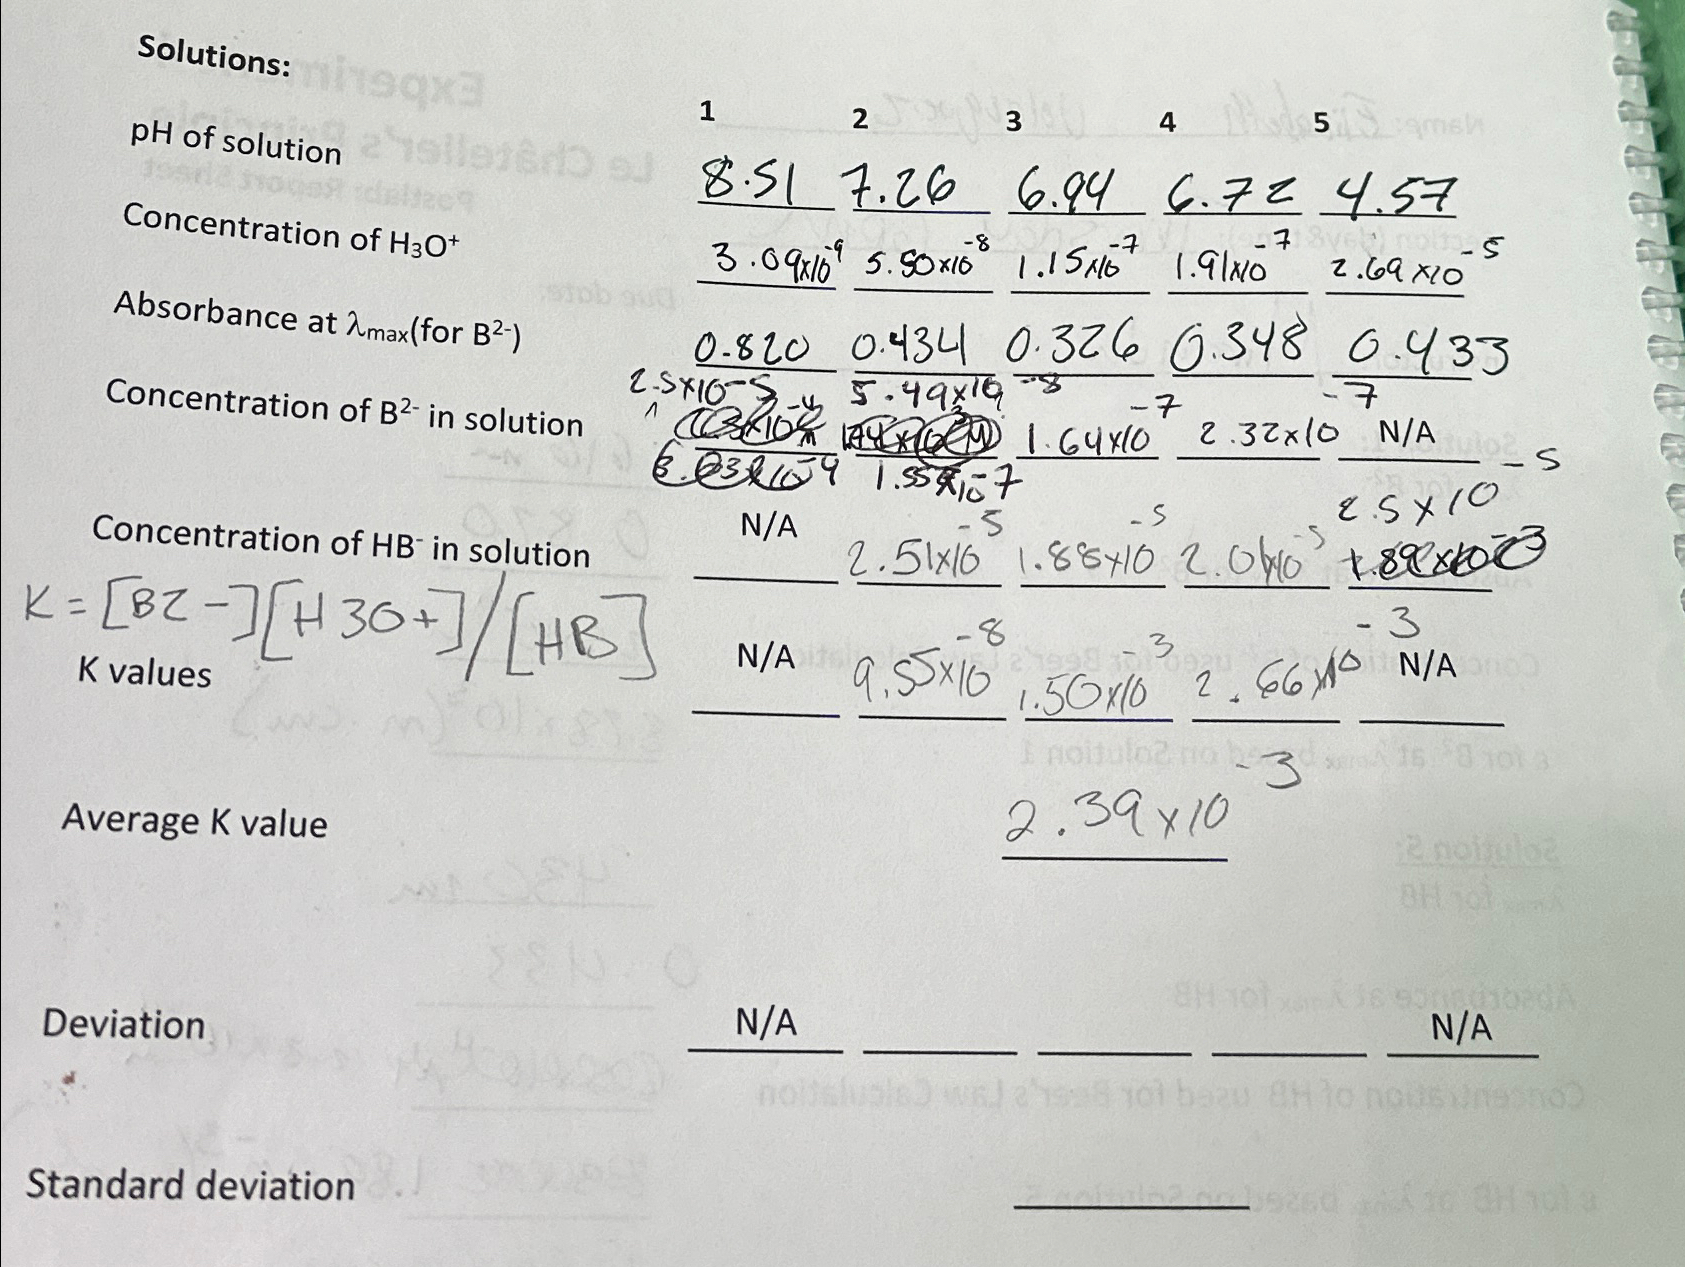 Solutions:
1 2 3 4 5
pH of solution 8.51 7.26 6.94 6.72 4.57
Concentration of H₃O⁺ 3.09x10⁻⁹ 5.50x10⁻⁸ 1.15x10⁻⁷ 1.91x10⁻⁷ 2.69x10⁻⁵
Absorbance at λmax(for B²⁻) 0.820 0.434 0.326 0.348 0.433
2.5x10⁻⁵ 5.49x10⁻⁸
Concentration of B²⁻ in solution 1.64x10⁻⁷ 2.32x10⁻⁷ N/A
1.55x10⁻⁷
2.5x10⁻⁵
Concentration of HB⁻ in solution N/A 2.51x10⁻⁵ 1.88x10⁻⁵ 2.01x10⁻⁵
K = [B2-][H3O+]/[HB]
K values N/A 9.55x10⁻⁸ 1.50x10⁻³ 2.66x10⁻³ N/A
Average K value 2.39x10⁻³
Deviation N/A N/A
Standard deviation